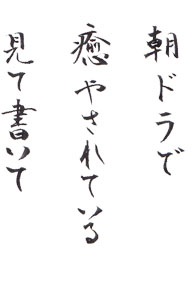 朝ドラで
癒やされている
見て書いて